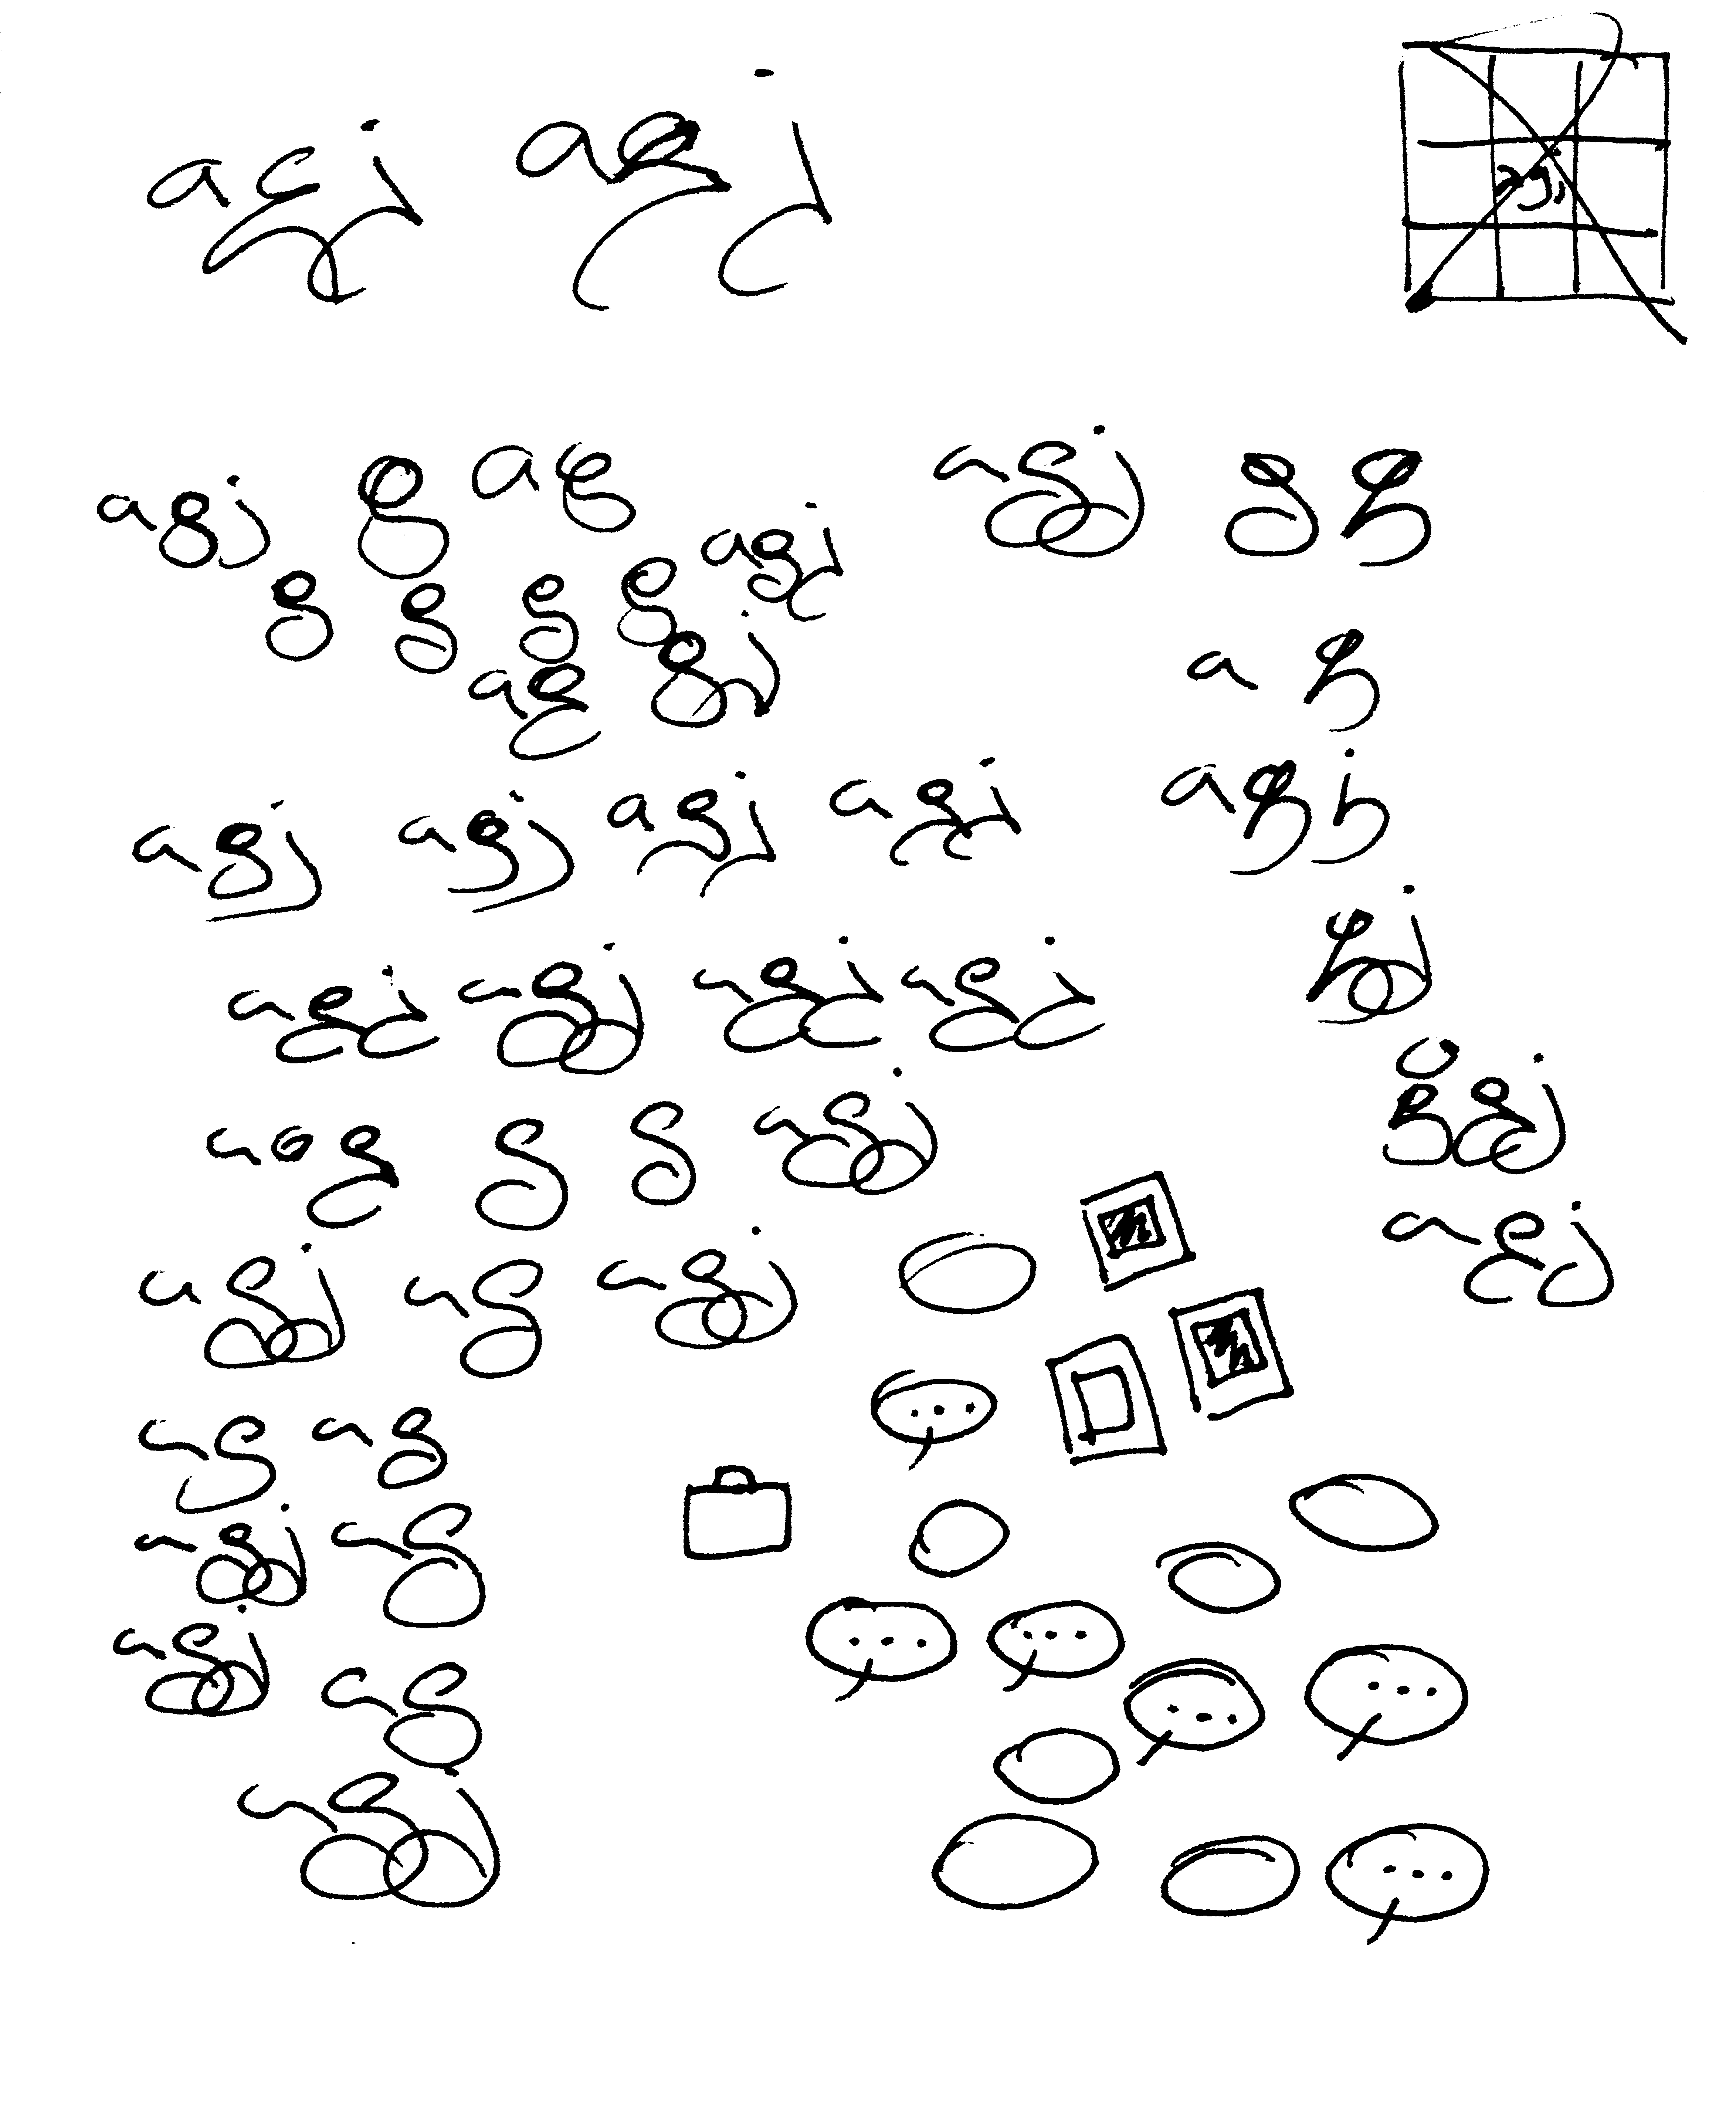 agj agj
agj g ag agj g g
g g g g agj
ag gj a g
agj agj agj agj agj
gj
agj agj agj agj
g gj
a g g g agj
agj
agj ag agj
ag ag
agj ag
agj ag
agj